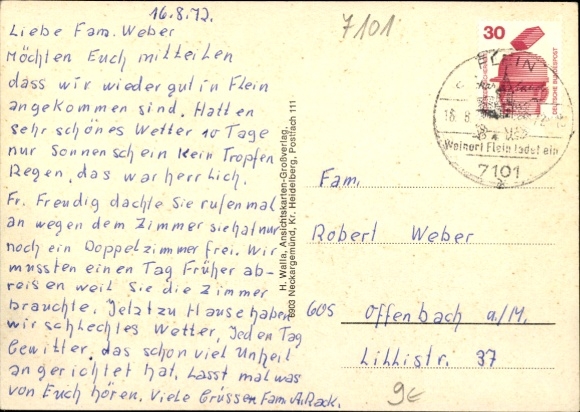 16.8.72.
Liebe Fam. Weber
Möchten Euch mitteilen
dass wir wieder gut in Flein
angekommen sind. Hatten
sehr schönes Wetter 10 Tage
nur Sonnenschein kein Tropfen
Regen, das war herrlich.
Fr. Freudig dachte Sie rufen mal
an wegen dem Zimmer sie hat nur
noch ein Doppelzimmer frei. Wir
mussten einen Tag Früher ab-
reisen weil Sie die Zimmer
brauchte. Jetzt zu Hause haben
wir schlechtes Wetter, Jeden Tag
Gewitter, das schon viel Unheil
angerichtet hat. Lasst mal was
von Euch hören. Viele Grüssen Fam. A. Rack.
H. Walla, Ansichtskarten-Großverlag,
6903 Neckargemünd, Kr. Heidelberg, Postfach 111
7101
30
DEUTSCHE BUNDESPOST
FLEIN
Weinort Flein ladet ein
7101
Fam.
Robert Weber
605 Offenbach a/M.
Lillistr. 37
9€